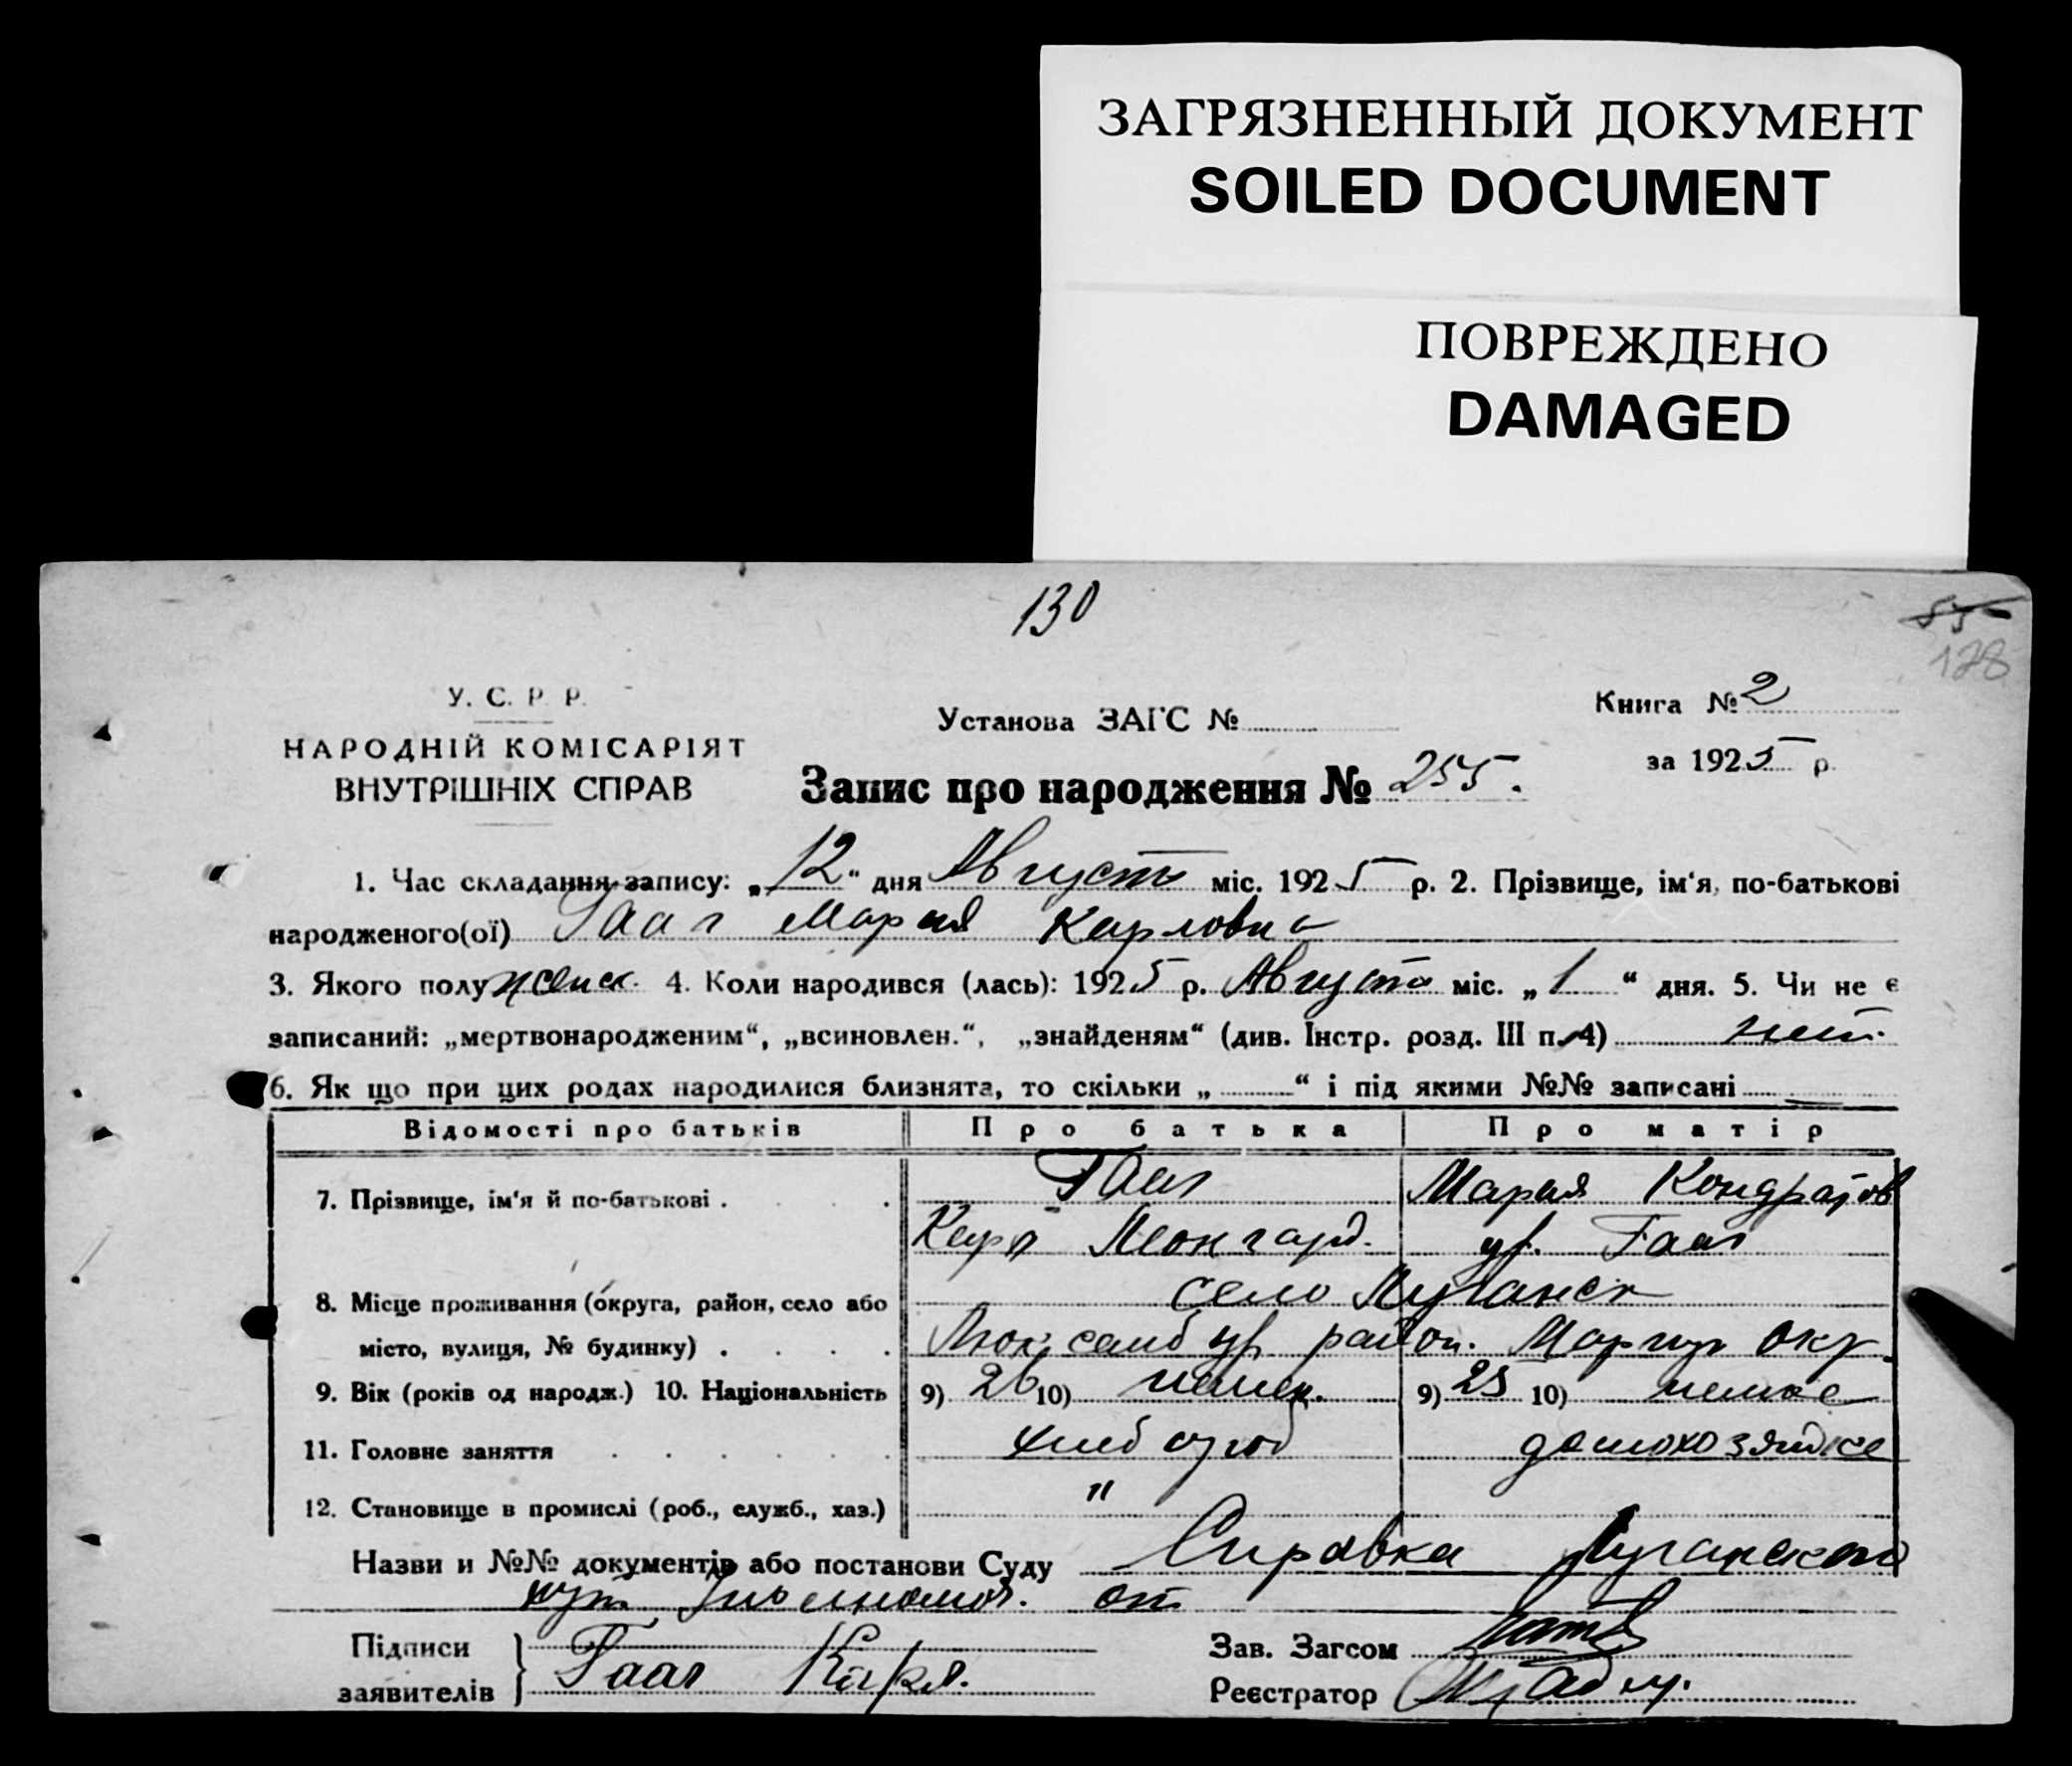 ЗАГРЯЗНЕННЫЙ ДОКУМЕНТ
SOILED DOCUMENT
ПОВРЕЖДЕНО
DAMAGED
130
55
128
У. С. Р. Р.
НАРОДНІЙ КОМІСАРІЯТ
ВНУТРІШНІХ СПРАВ
Установа ЗАГС №
Книга № 2
за 1925 р.
Запис про народження № 255.
1. Час складання запису: „12" дня Августъ міс. 1925 р. 2. Прізвище, ім'я, по-батькові
народженого(ої) Гааг Мария Карловна
3. Якого полу женск. 4. Коли народився (лась): 1925 р. Августа міс. „1" дня. 5. Чи не є
записаний: „мертвонародженим", „всиновлен.", „знайденям" (див. Інстр. розд. III п. 4) нет.
6. Як що при цих родах народилися близнята, то скільки „ " і під якими №№ записані —
Відомості про батьків Про батька Про матір
7. Прізвище, ім'я й по-батькові . Гааг Мария Кондратов
Карл Леонгард. ур. Гааг
8. Місце проживання (округа, район, село або село Луганск
місто, вулиця, № будинку) . Люксембур район. Мариуп окр.
9. Вік (років од народж.) 10. Національність 9) 26 10) немец. 9) 25 10) немке
11. Головне заняття хлебороб домохозяйке
12. Становище в промислі (роб., служб., хаз.) "
Назви и №№ документів або постанови Суду Справка Луганского
от
Підписи Зав. Загсом
заявителів Гааг Карл. Реєстратор